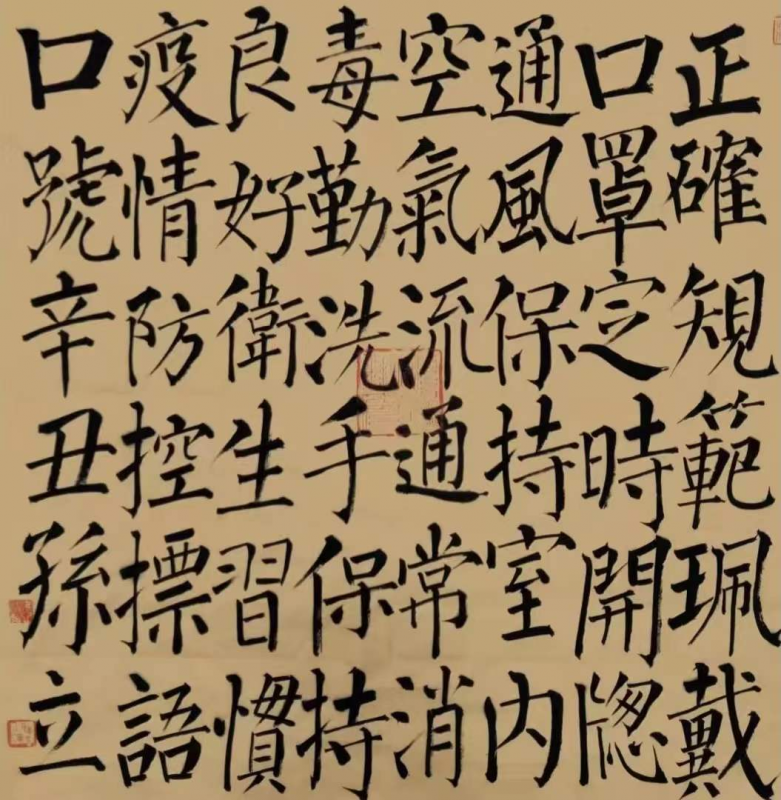 正確規範珮戴
口罩定時開牕
通風保持室内
空氣流通常消
毒勤洗手保持
良好衛生習慣
疫情防控摽語
口號辛丑孫立